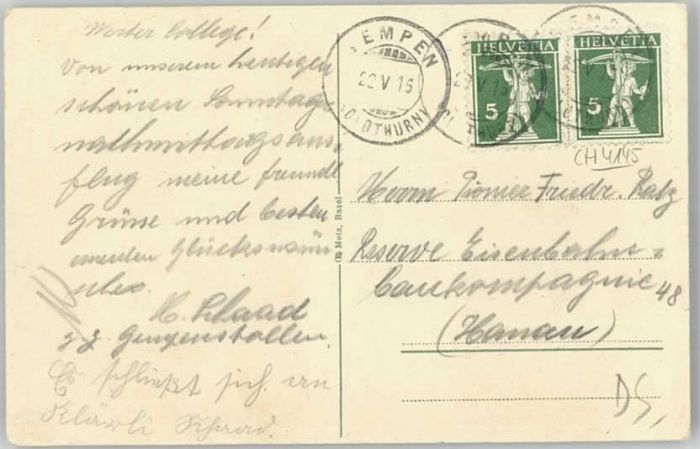 Werter College!
Von unserem heutigen
schönen Sonntags
nachmittagsaus,
flug meine freundl
Grüsse und besten
Glückswün
sche.
K. Schaad
z.Z. Gempenstollen.
Es schließt sich an
Klärli Schaad.
Metz, Basel
GEMPEN
22 V 15
(SOLOTHURN)
HELVETIA
5
HELVETIA
5
CH4145
Herrn Pionier Friedr. Ratz
Reserve Eisenbahn-
baukompagnie 48
(Hanau)
DS,